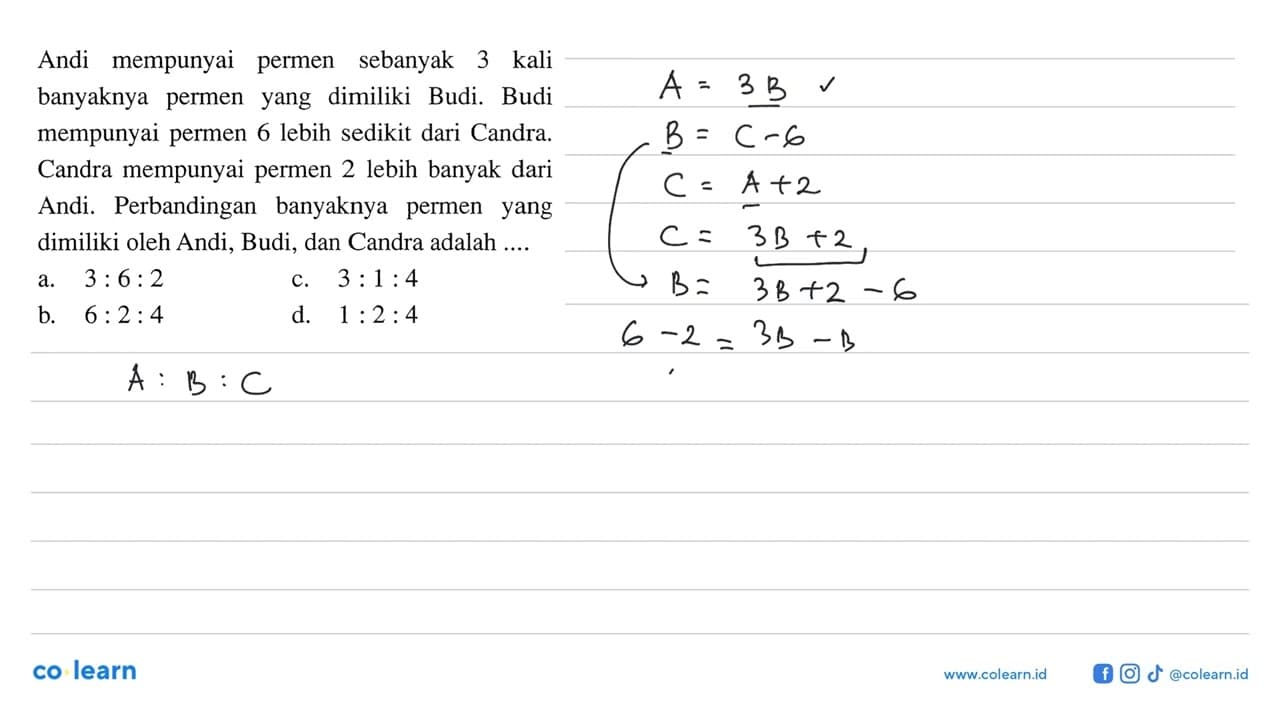 Andi mempunyai permen sebanyak 3 kali
banyaknya permen yang dimiliki Budi. Budi
mempunyai permen 6 lebih sedikit dari Candra.
Candra mempunyai permen 2 lebih banyak dari
Andi. Perbandingan banyaknya permen yang
dimiliki oleh Andi, Budi, dan Candra adalah ....
a. 3 : 6 : 2 c. 3 : 1 : 4
b. 6 : 2 : 4 d. 1 : 2 : 4
A : B : C
A = 3B ✓
B = C - 6
C = A + 2
C = 3B + 2
B = 3B + 2 - 6
6 - 2 = 3B - B
co learn
www.colearn.id
@colearn.id